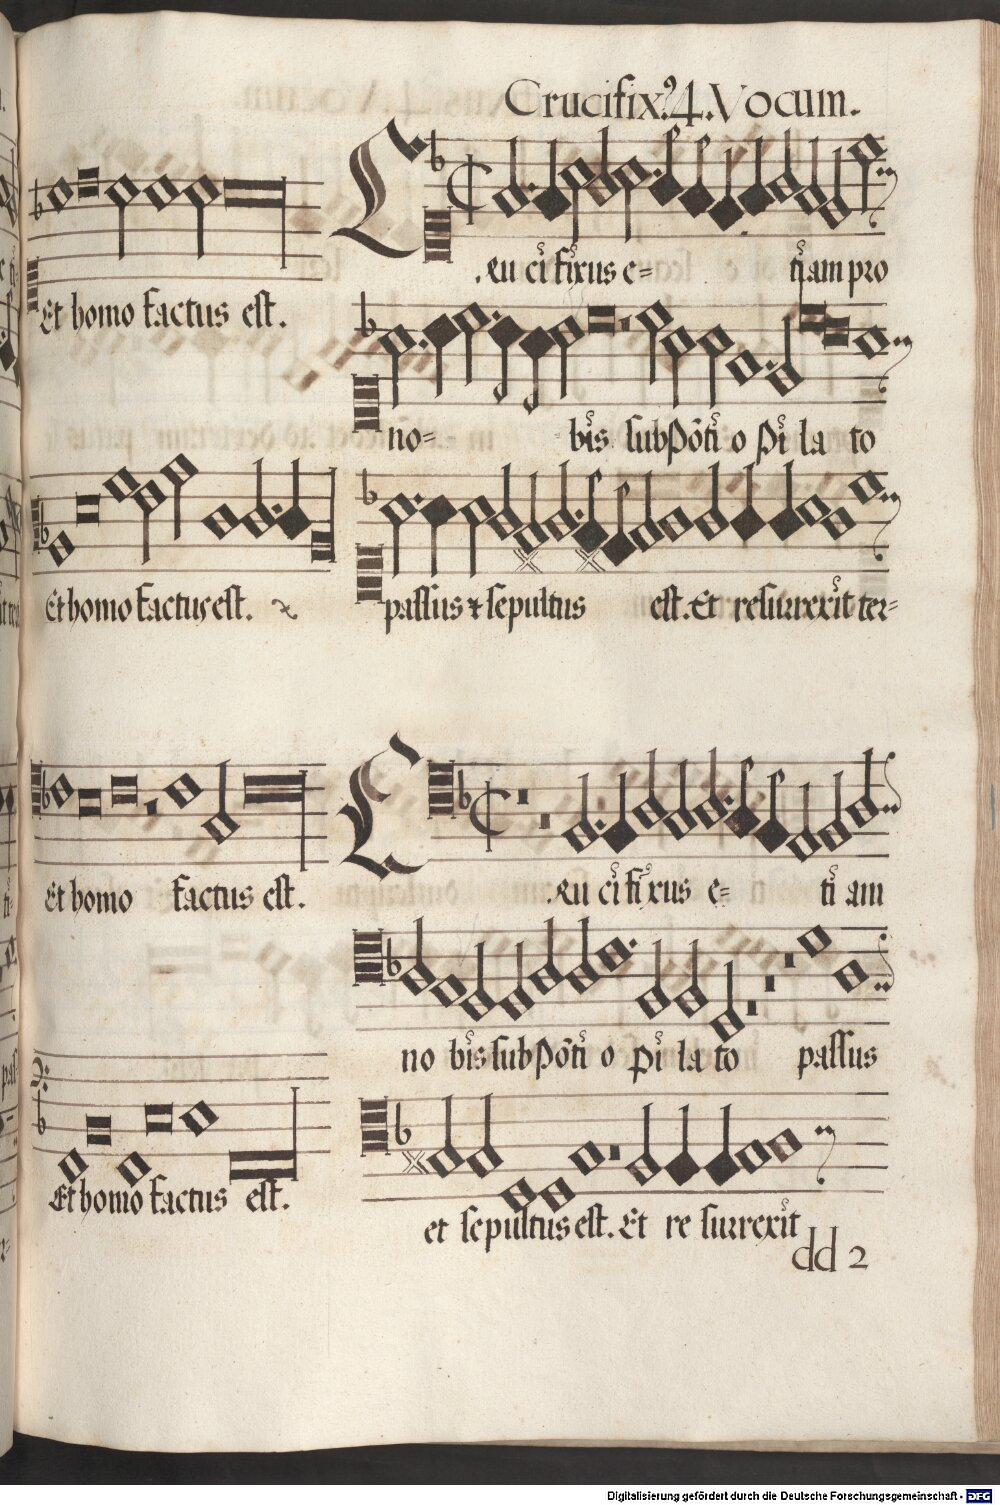 Crucifixꝰ 4. Vocum.
Et homo factus est.
Cru ci fixus e= ti am pro
no= bis sub Põti o Pi la to
Et homo factus est.
passus & sepultus est. Et resurrexit ter=
Et homo factus est.
Cru ci fi xus e= ti am
no bis sub Põti o Pi la to passus
Et homo factus est.
et sepultus est. Et re surrexit
dd 2
Digitalisierung gefördert durch die Deutsche Forschungsgemeinschaft - DFG